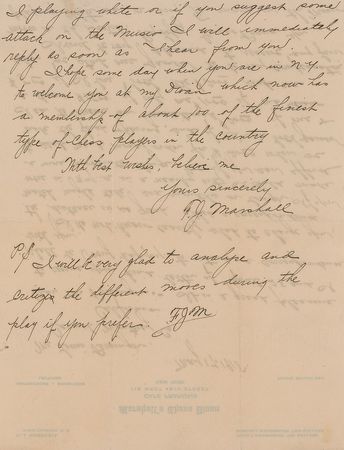 I playing white or if you suggest some
attack on the Musio I will immediately
reply as soon as I hear from you.
I hope some day when you are in N.Y.
to welcome you at my Divan which now has
a membership of about 100 of the finest
type of Chess players in the country
With best wishes, believe me
Yours sincerely
F.J. Marshall
P.S. I will be very glad to analyze and
the different moves during the
play if you prefer. FJM